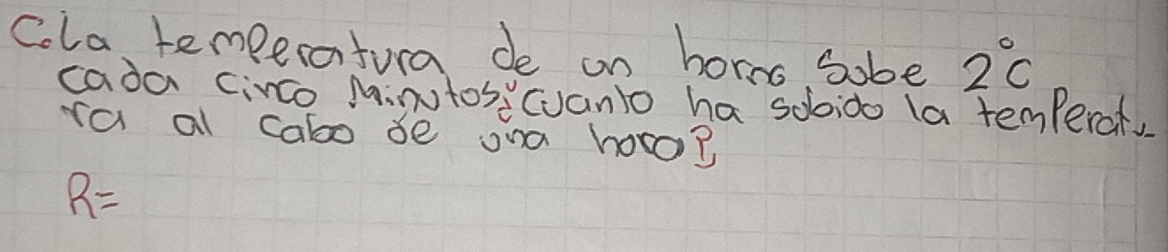 C. La temperatura de un horno sube 2°C
cada cinco minutos ¿cuanto ha subido la temperatu-
ra al cabo de una hora?
R=